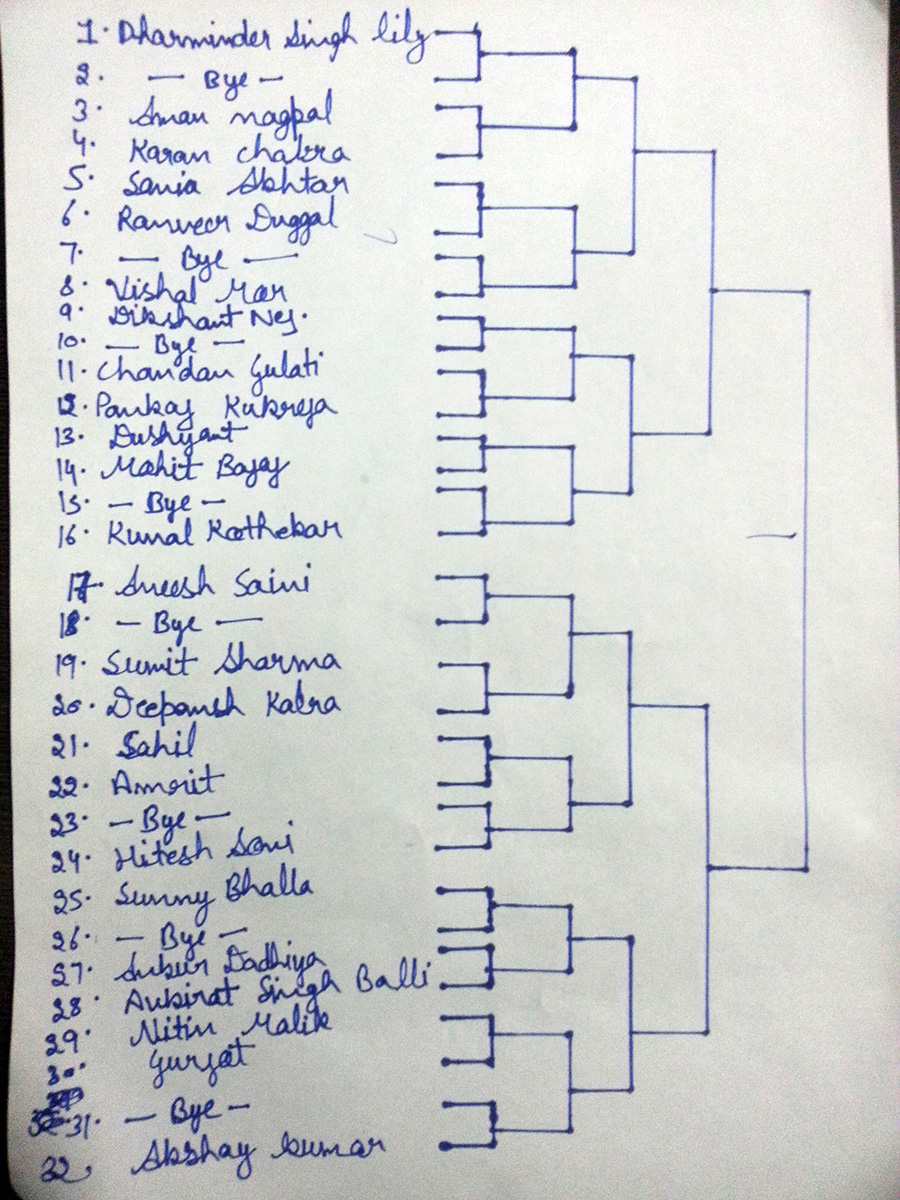 1. Dharminder Singh lily
2. — Bye —
3. Aman nagpal
4. Karan chakra
5. Sania Akhtar
6. Ranveer Duggal
7. — Bye —
8. Vishal Mar
9. Dikshant Nej.
10. — Bye —
11. Chandan Gulati
12. Pankaj Kukreja
13. Dushyant
14. Mohit Bajaj
15. — Bye —
16. Kunal Kothekar
17. Aneesh Saini
18. — Bye —
19. Sumit Sharma
20. Deepansh Kalra
21. Sahil
22. Amrit
23. — Bye —
24. Hitesh Soni
25. Sunny Bhalla
26. — Bye —
27. Ankur Dadhiya
28. Aukirat Singh Balli
29. Nitin Malik
30. Gurjat
31. — Bye —
32. Akshay kumar